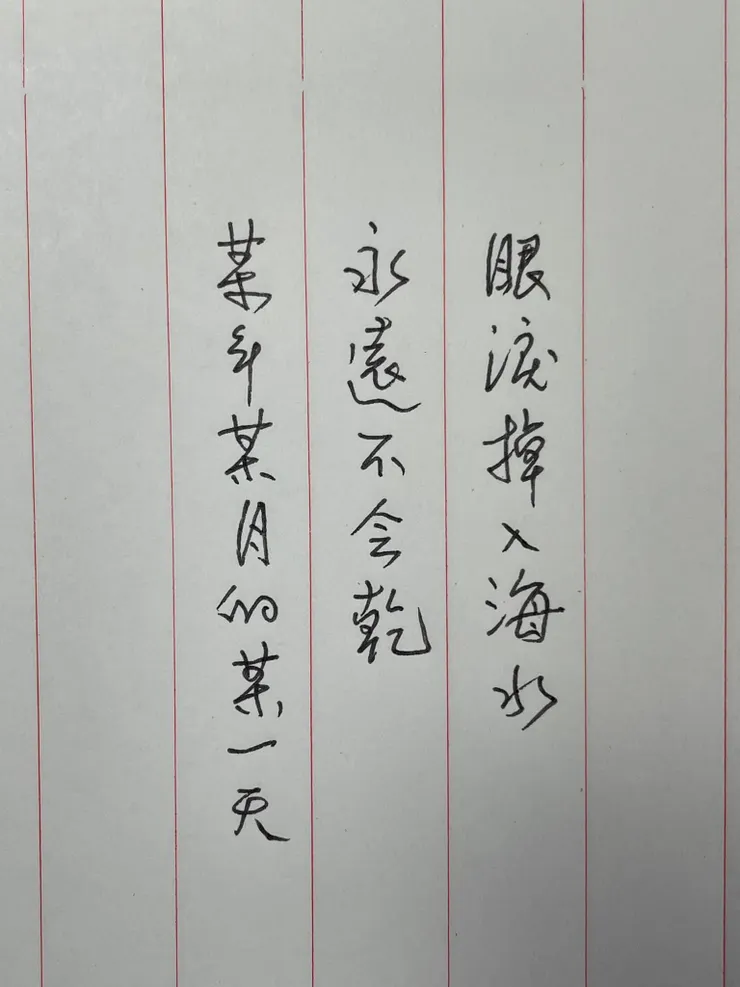 眼淚掉入海水
永遠不会乾
某年某月的某一天